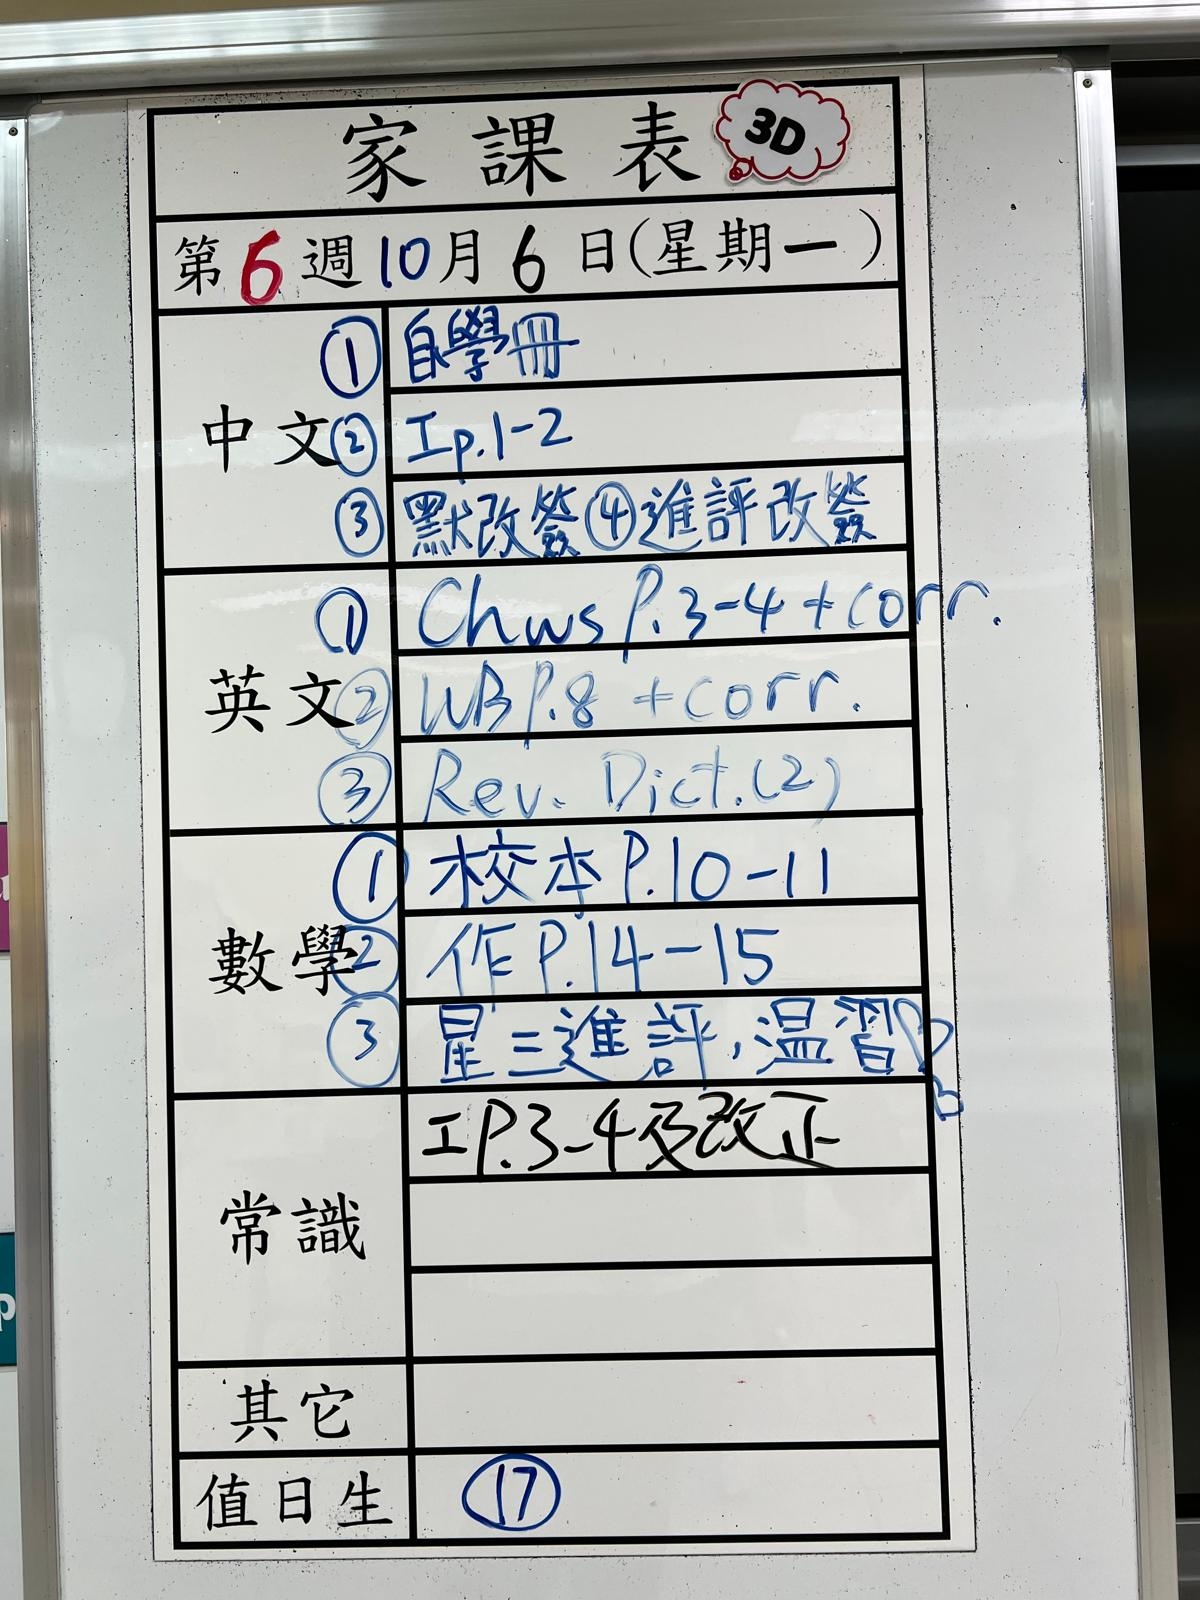 家課表 3D
第6週10月6日(星期一)
中文
① 自學冊
② 工p.1-2
③ 默改簽④進評改簽
英文
① Ch ws P.3-4 + corr.
② WB P.8 + corr.
③ Rev. Dict.(2)
數學
① 校本P.10-11
② 作P.14-15
③ 星三進評，温習
常識
工P.3-4及改正
其它
值日生 ⑰